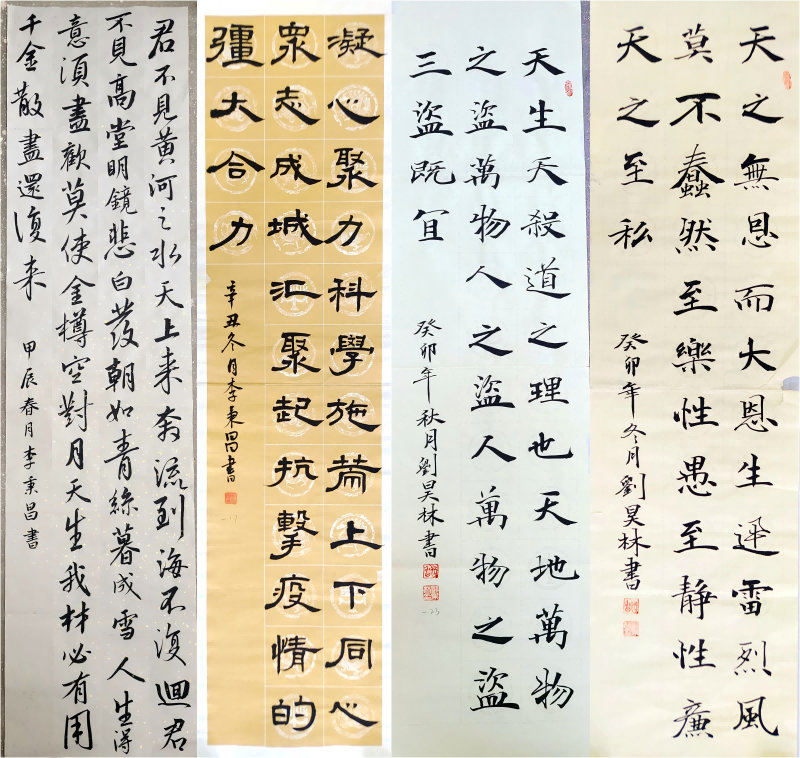 君不見黄河之水天上来奔流到海不復迴君
不見高堂明鏡悲白發朝如青絲暮成雪人生得
意須盡歡莫使金樽空對月天生我材必有用
千金散盡還復来
甲辰春月李秉昌書
凝心聚力科學施策上下同心
眾志成城汇聚起抗擊疫情的
彊大合力
辛丑冬月李秉昌書
-17
天生天殺道之理也天地萬物
之盜萬物人之盜人萬物之盜
三盜既宜
癸卯年秋月劉昊林書
-23
天之無恩而大恩生迅雷烈風
莫不蠢然至樂性愚至靜性廉
天之至私
癸卯年冬月劉昊林書